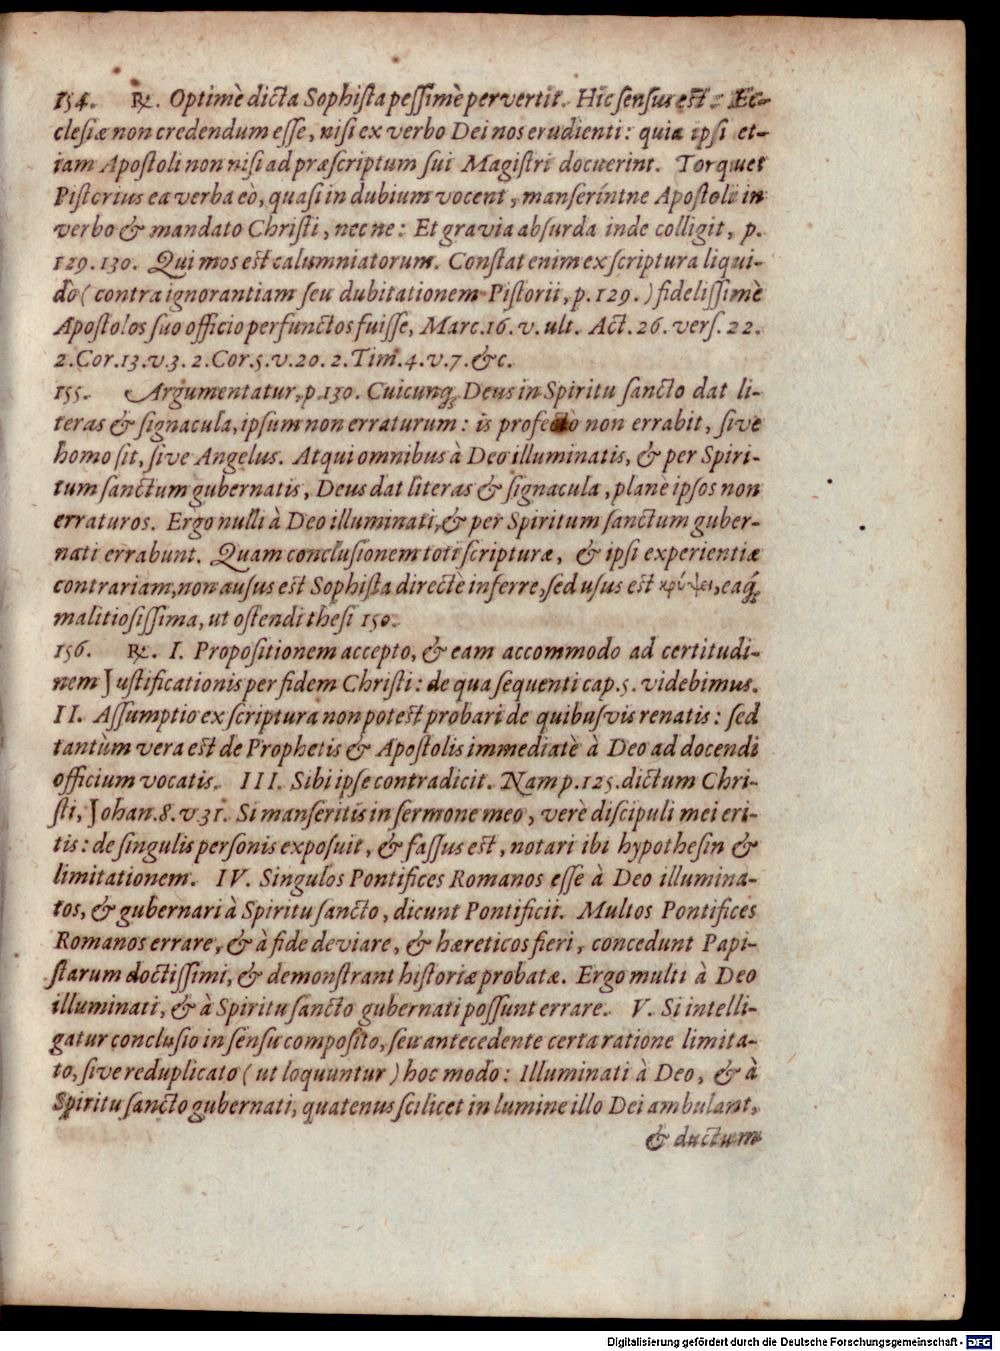 154. ℞. Optimè dicta Sophista pessimè pervertit. Hic sensus est: Ec-
clesiæ non credendum esse, nisi ex verbo Dei nos erudienti: quia ipsi et-
iam Apostoli non nisi ad præscriptum sui Magistri docuerint. Torquet
Pistorius ea verba eò, quasi in dubium vocent, manserintne Apostoli in
verbo & mandato Christi, nec ne: Et gravia absurda inde colligit, p.
129. 130. Qui mos est calumniatorum. Constat enim ex scriptura liqui-
do (contra ignorantiam seu dubitationem Pistorii, p. 129.) fidelissimè
Apostolos suo officio perfunctos fuisse, Marc. 16. v. ult. Act. 26. vers. 22.
2. Cor. 13. v. 3. 2. Cor. 5. v. 20. 2. Tim. 4. v. 7. &c.
155. Argumentatur, p. 130. Cuicunq; Deus in Spiritu sancto dat li-
teras & signacula, ipsum non erraturum: is profectò non errabit, sive
homo sit, sive Angelus. Atqui omnibus à Deo illuminatis, & per Spiri-
tum sanctum gubernatis, Deus dat literas & signacula, planè ipsos non
erraturos. Ergo nulli à Deo illuminati, & per Spiritum sanctum guber-
nati errabunt. Quam conclusionem toti scripturæ, & ipsi experientiæ
contrariam, non ausus est Sophista directè inferre, sed usus est κρύψει, eaq́;
malitiosissima, ut ostendi thesi 150.
156. ℞. I. Propositionem accepto, & eam accommodo ad certitudi-
nem Justificationis per fidem Christi: de qua sequenti cap. 5. videbimus.
II. Assumptio ex scriptura non potest probari de quibusvis renatis: sed
tantùm vera est de Prophetis & Apostolis immediatè à Deo ad docendi
officium vocatis. III. Sibi ipse contradicit. Nam p. 125. dictum Chri-
sti, Johan. 8. v 31. Si manseritis in sermone meo, verè discipuli mei eri-
tis: de singulis personis exposuit, & fassus est, notari ibi hypothesin &
limitationem. IV. Singulos Pontifices Romanos esse à Deo illumina-
tos, & gubernari à Spiritu sancto, dicunt Pontificii. Multos Pontifices
Romanos errare, & à fide deviare, & hæreticos fieri, concedunt Papi-
starum doctissimi, & demonstrant historiæ probatæ. Ergo multi à Deo
illuminati, & à Spiritu sancto gubernati possunt errare. V. Si intelli-
gatur conclusio in sensu composito, seu antecedente certa ratione limita-
to, sive reduplicato (ut loquuntur) hoc modo: Illuminati à Deo, & à
Spiritu sancto gubernati, quatenus scilicet in lumine illo Dei ambulant,
& ductum
Digitalisierung gefördert durch die Deutsche Forschungsgemeinschaft - DFG